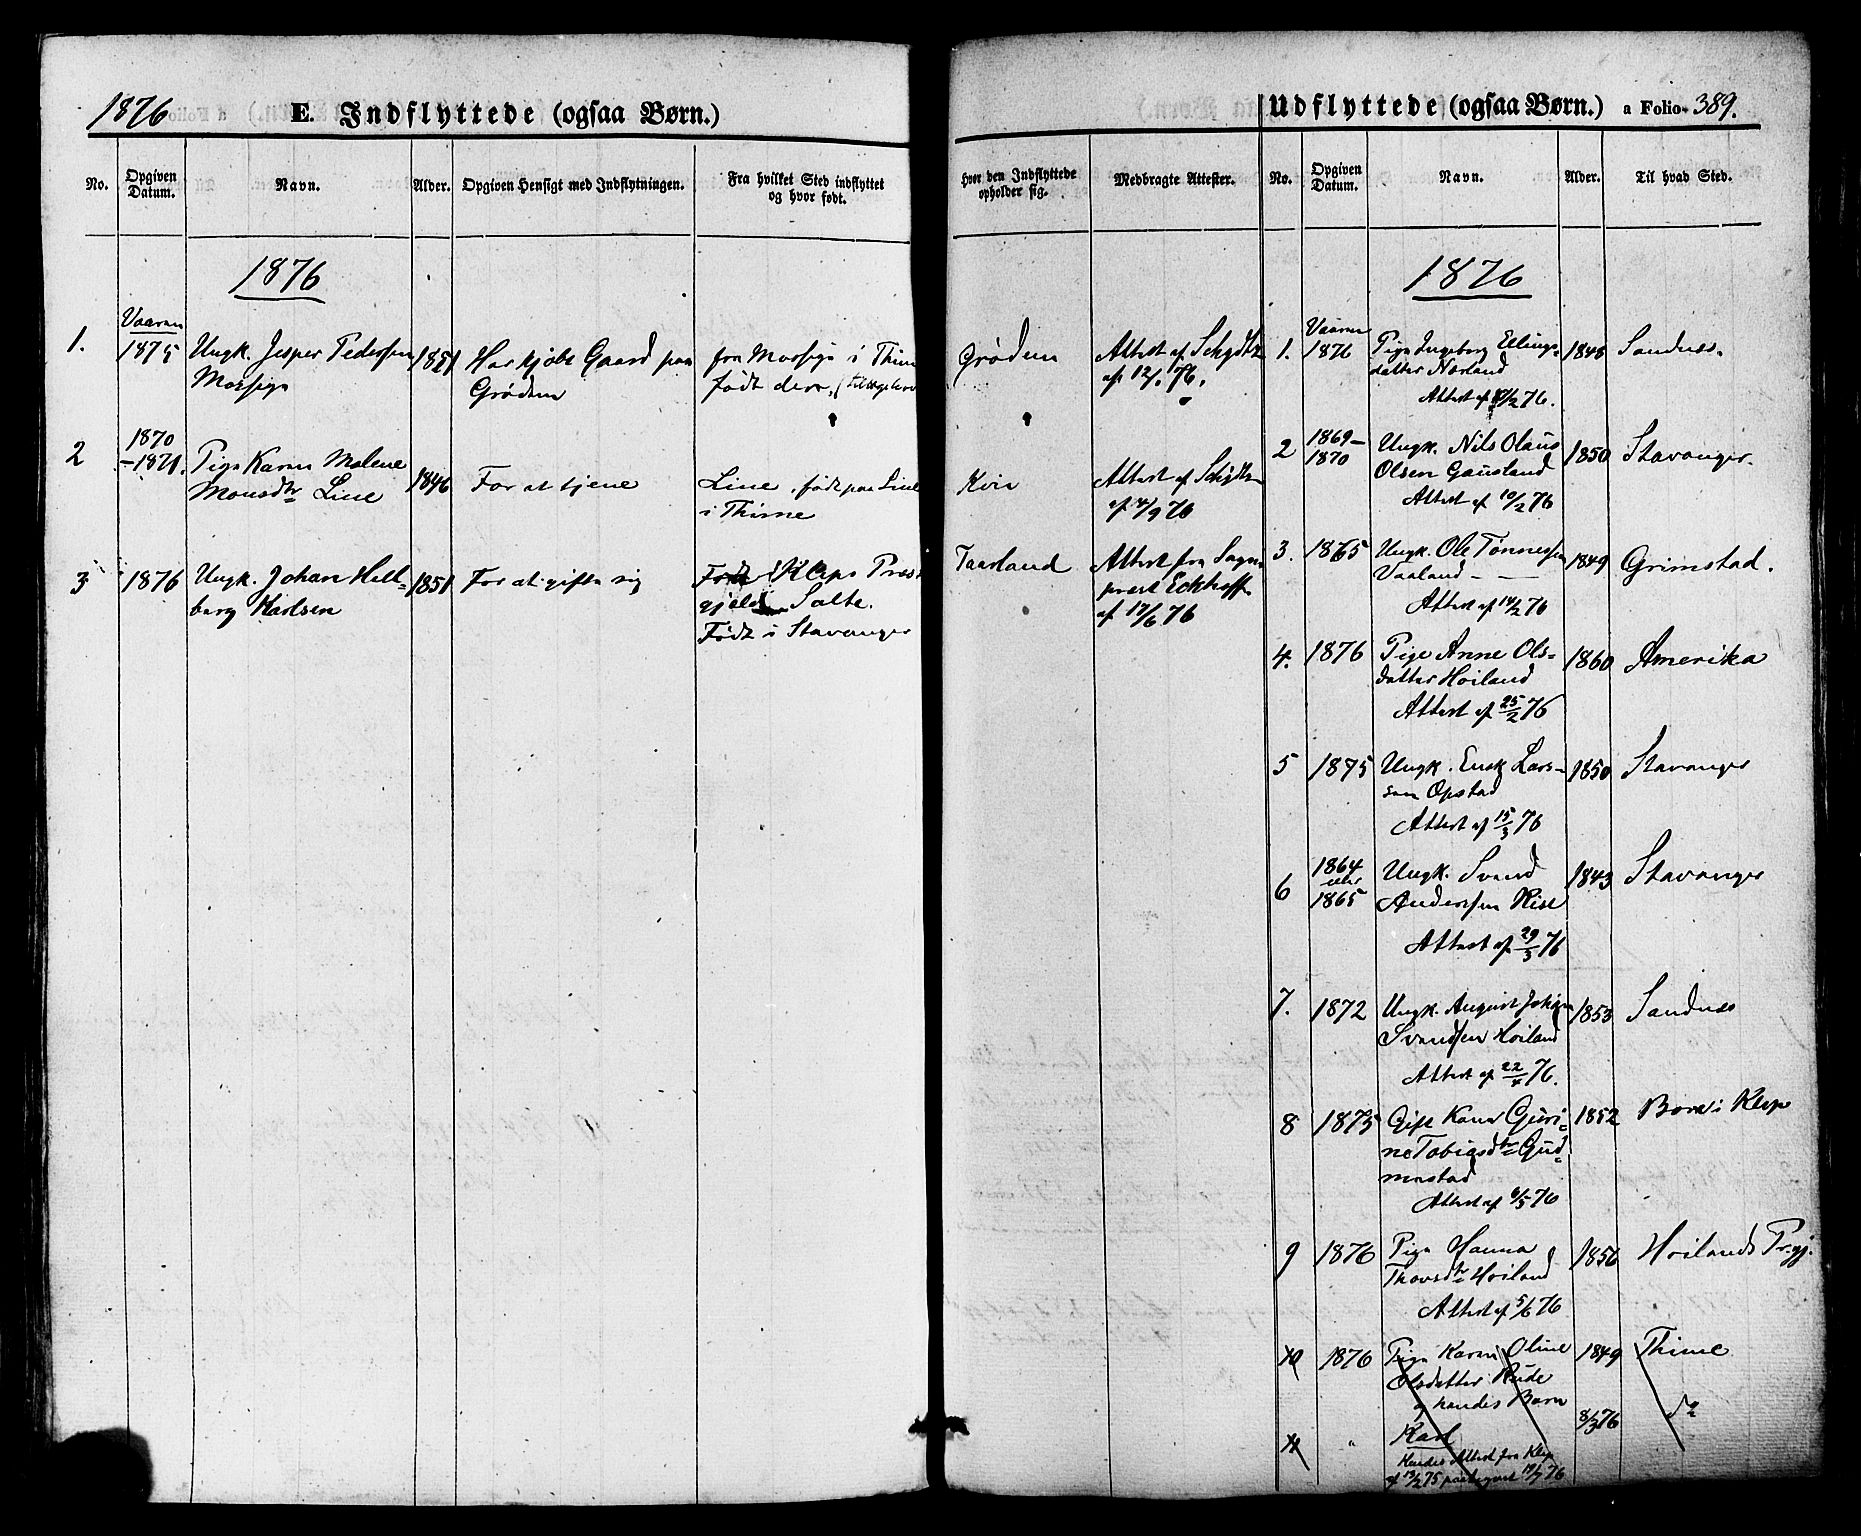 1876 E. Indflyttede (ogsaa Børn.)
No. Opgiven Datum. Navn. Alder. Opgiven Hensigt med Indflytningen. Fra hvilket Sted indflyttet og hvor født.
1876
1. Vaaren 1875 Ungk. Jesper Pedersen 1851 Har kjøbt Gaard paa fra Mossige i Thime
Mossige Grødem født der.
2 1870
-1871. Pige Karen Malene 1846 For at tjene Line, født paa Line
Monsdtr Line i Thime
3 1876 Ungk. Johan Hell- 1851 For at gifte sig Født Kleps Præste
berg Karlsen gjeld Salte.
Født i Stavanger
Udflyttede (ogsaa Børn.) a Folio 389.
Hvor den Indflyttede opholder sig. Medbragte Attester. No. Opgiven Datum. Navn. Alder. Til hvad Sted.
Grødem Attest af Schydtz
af 12/1 76.
Kvie Attest af Schydtz
af 4/9 76
Taarland Attest fra Sogne
prest Eckhoff
af 17/6 76
1876
1. Vaaren
1876 Pige Ingeborg Ellings- 1848 Sandnes.
datter Nærland
Attest af /2 76.
2 1869-
1870 Ungk. Nils Olaus 1850 Stavanger.
Olsen Gausland
Attest af 10/2 76
3. 1865 Ungk. Ole Tønnessen 1849 Grimstad.
Vaaland
Attest af 14/2 76
4. 1876 Pige Anne Ols- 1860 Amerika
datter Høiland
Attest af 25/2 76
5 1875 Ungk. Enok Lars- 1850 Stavanger
sen Opstad
Attest af 15/3 76
6 1864
eller
1865 Ungk. Svend 1843 Stavanger
Anderssen Risa
Attest af 29/3 76
7. 1872 Ungk. August Johan 1853 Sandnes
Svendsen Høiland
Attest af 22/4 76.
8 1875 Gift Kone Guri- 1852 Bore i Klep
ne Tobiasdtr Gud-
mestad
Attest af 6/5 76
9 1876 Pige Hanna 1856 Høilands Prgj.
Thorsdtr Høiland
Attest af 5/6 76
10 1876 Pige Karen Oline 1849 Thime
Olsdatter Rude
og hendes Barn
11 " Karl 8/3 76 do
Hendes Attest fra Klep
af 13/2 75 paategnet 19/7 76